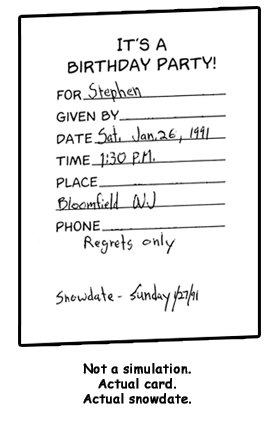 IT'S A
BIRTHDAY PARTY!
FOR Stephen
GIVEN BY
DATE Sat. Jan. 26, 1991
TIME 1:30 P.M.
PLACE
Bloomfield NJ
PHONE
Regrets only
Snowdate - Sunday 1/27/91
Not a simulation.
Actual card.
Actual snowdate.